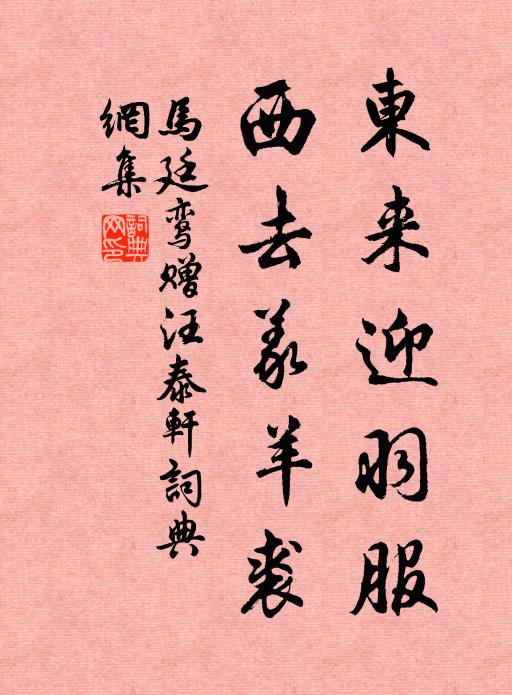 東来迎羽服
西去羨羊裘
馬廷鸾贈汪泰軒詞典
網集
詞典网印